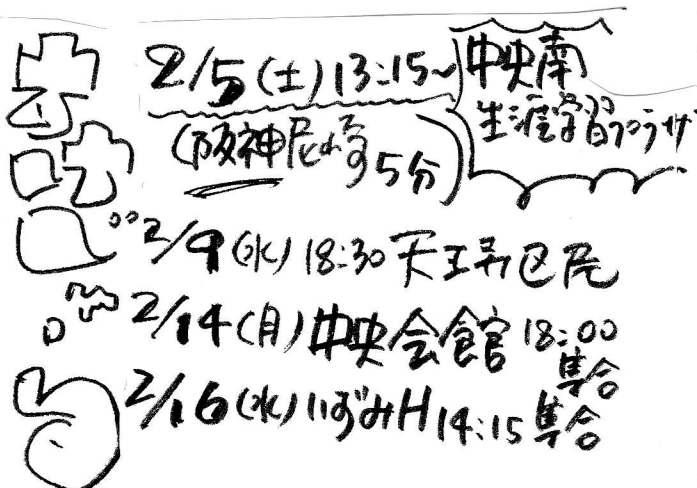 2/5(土)13:15〜
中央南
生涯学習プラザ
(阪神尼崎5分)
2/9(水)18:30天王寺区民
2/14(月)中央会館18:00
集合
2/16(水)いずみH14:15集合